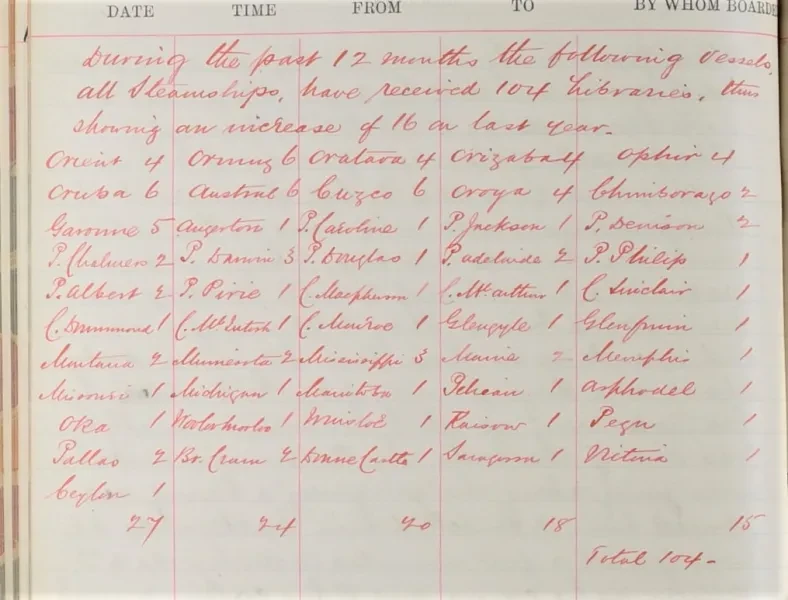 DATE TIME FROM TO BY WHOM BOARDE
During the past 12 months the following vessels,
all Steamships, have received 104 Libraries, thus
showing an increase of 16 on last year.
Orient 4 Ormuz 6 Orotava 4 Orizaba 4 Ophir 4
Oruba 6 Austral 6 Cuzco 6 Oroya 4 Chimborazo 2
Garonne 5 Angerton 1 P. Caroline 1 P. Jackson 1 P. Denison 2
P. Chalmers 2 P. Darwin 3 P. Douglas 1 P. Adelaide 2 P. Philip 1
P. Albert 2 P. Pirie 1 C. Macpherson 1 C. McArthur 1 C. Sinclair 1
C. Drummond 1 C. McIntosh 1 C. Monroe 1 Glengyle 1 Glenfruin 1
Montana 2 Minnesota 2 Mississippi 3 Maine 2 Memphis 1
Missouri 1 Michigan 1 Manitoba 1 Pelican 1 Asphodel 1
Oka 1 Woolloomooloo 1 1 Raisow 1 Pegu 1
Pallas 2 Br. Crown 2 Donne Castle 1 Saragossa 1 1
Ceylon 1
27 24 20 18 15
Total 104-